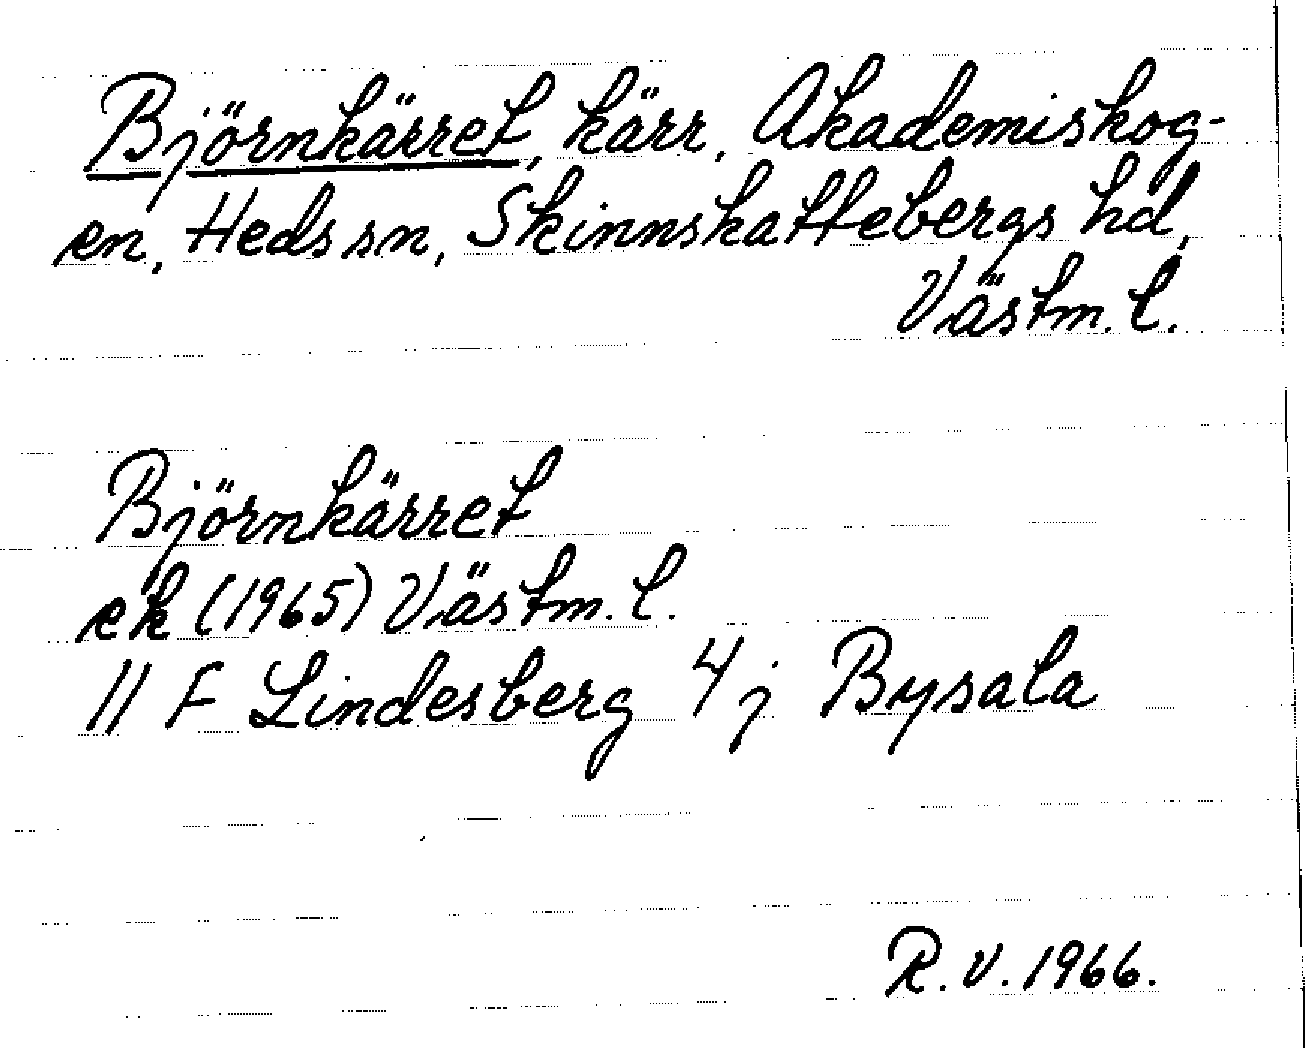 Björnkärret, kärr, Akademiskog-
en, Heds sn, Skinnskattebergs hd,
Västm. l.
Björnkärret
ek (1965) Västm. l.
11 F Lindesberg 4 j Bysala
R. V. 1966.